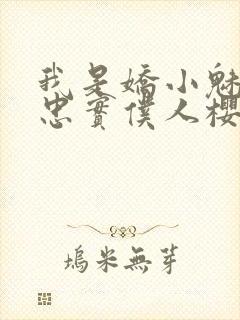 我是嬌小魅
忠實僕人櫻
塢米無芽